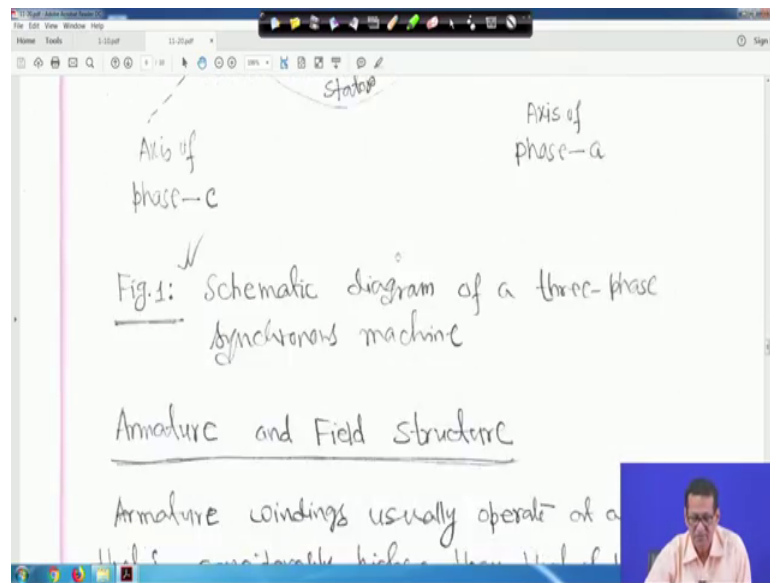 11-20.pdf - Adobe Acrobat Reader DC
File Edit View Window Help
Home Tools 1-10.pdf 11-20.pdf × Sign
Stator
Axis of
phase-a
Axis of
phase-c
Fig.1: Schematic diagram of a three-phase
synchronous machine
Armature and Field Structure
Armature windings usually operate at a